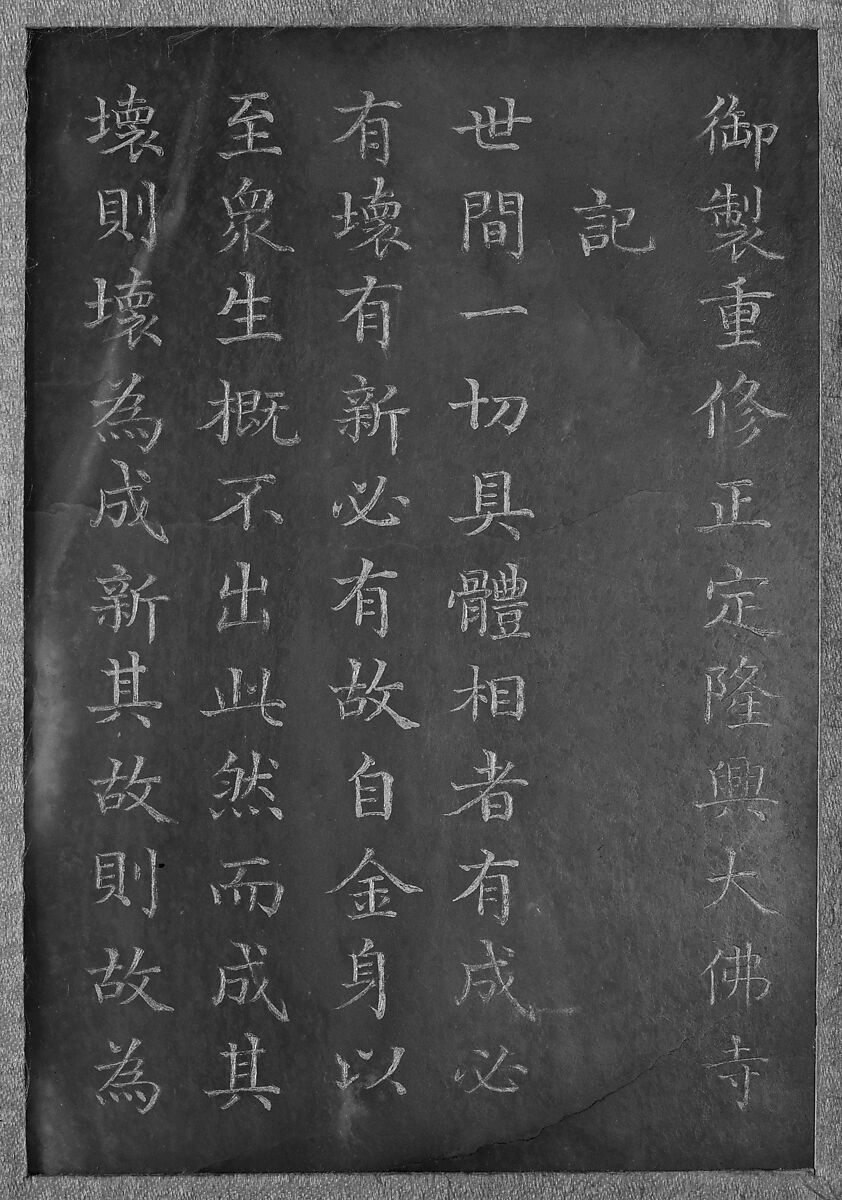 御製重修正定隆興大佛寺
記
世間一切具體相者有成必
有壞有新必有故自金身以
至眾生概不出此然而成其
壞則壞為成新其故則故為